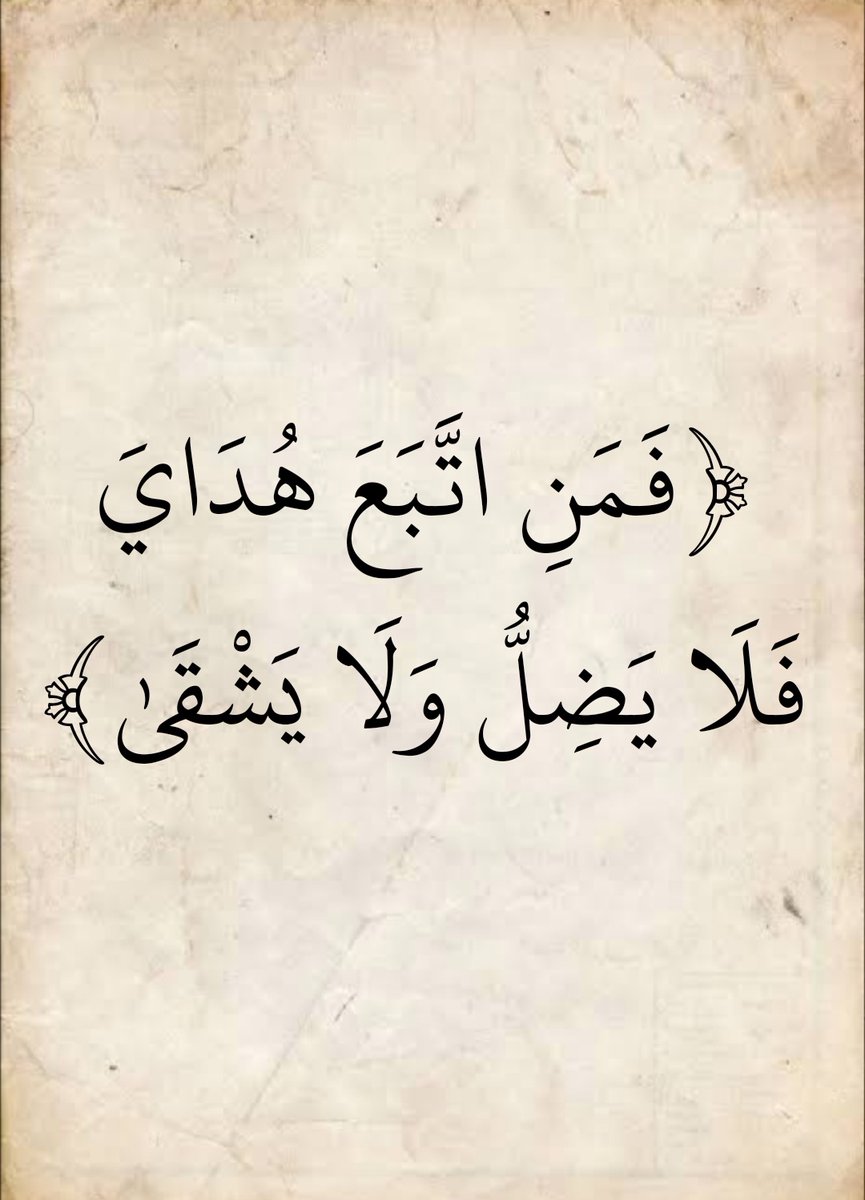 ﴿فَمَنِ اتَّبَعَ هُدَايَ
فَلَا يَضِلُّ وَلَا يَشْقَىٰ﴾